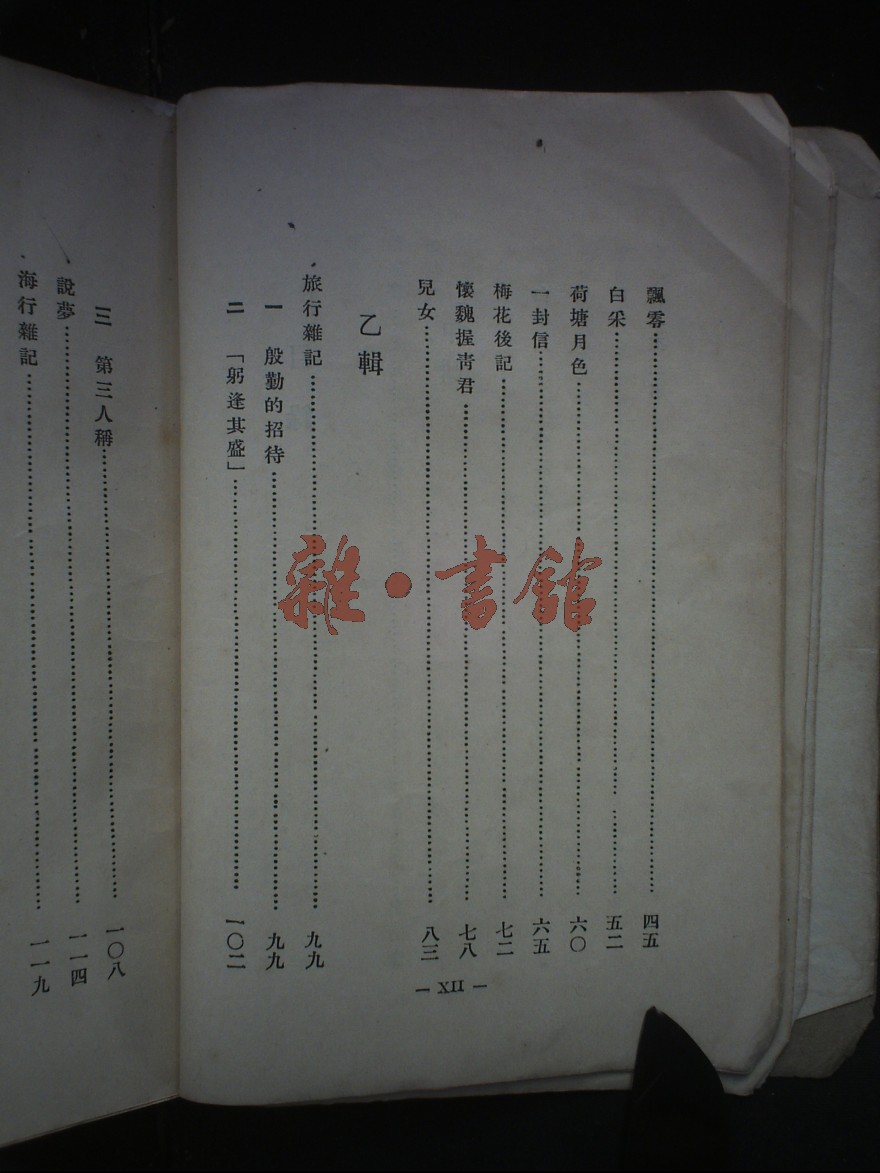 飄零……四五
白采……五二
荷塘月色……六〇
一封信……六五
梅花後記……七二
懷魏握靑君……七八
兒女……八三
乙輯
旅行雜記……九九
一 殷勤的招待……九九
二 「躬逢其盛」……一〇二
— XII —
三 第三人稱……一〇八
說夢……一一四
海行雜記……一一九
雜·書館